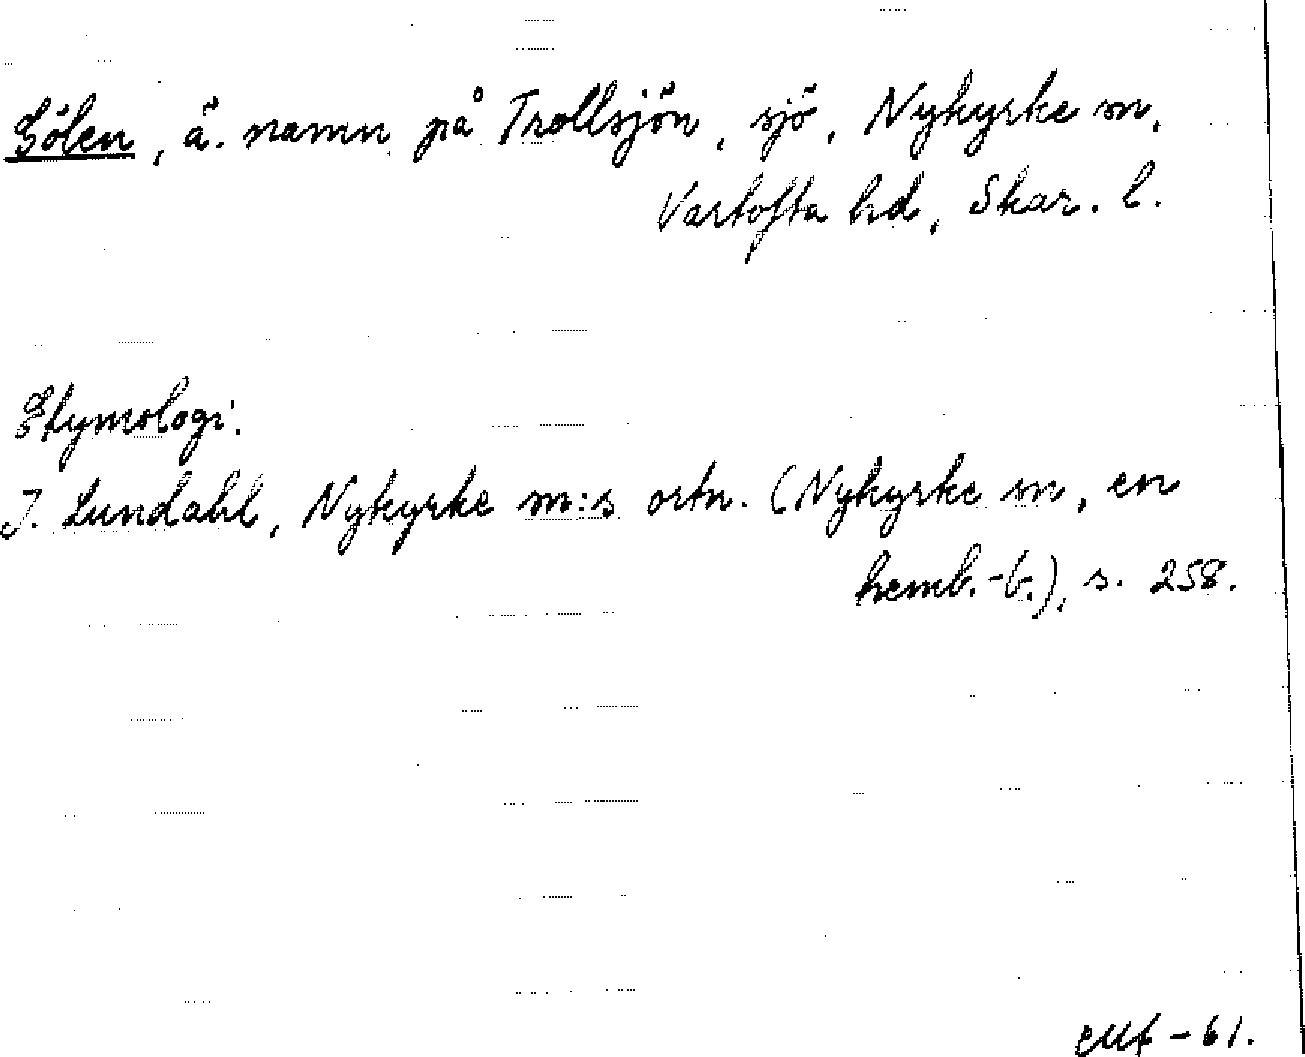 Gölen, ä. namn på Trollsjön, sjö, Nykyrke sn,
Vartofta hd, Skar. l.
Etymologi:
I. Lundahl, Nykyrke sn:s ortn. (Nykyrke sn, en
hemb.-b.), s. 258.
-61.